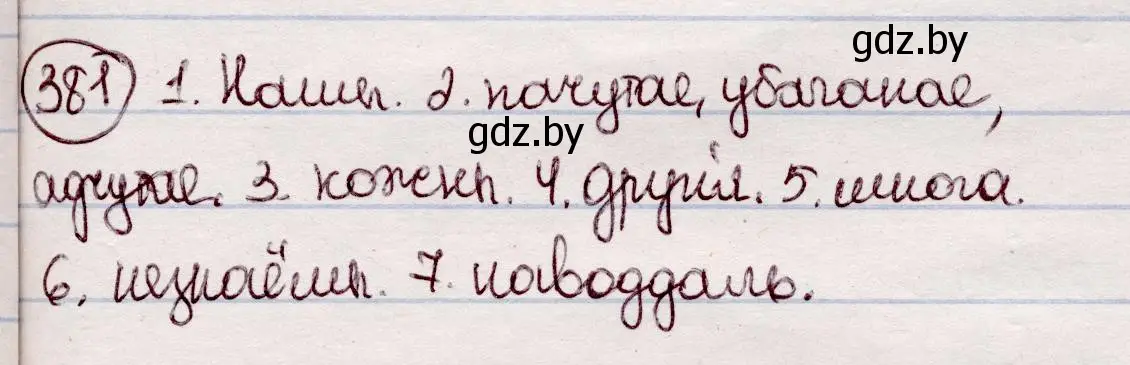 gdz.by
381 1. Нашы. 2. пачутае, убачанае,
gdz.by
адчутае. 3. кожны. 4. другія. 5. многа.
6. незнаёмы. 7. наводдаль.